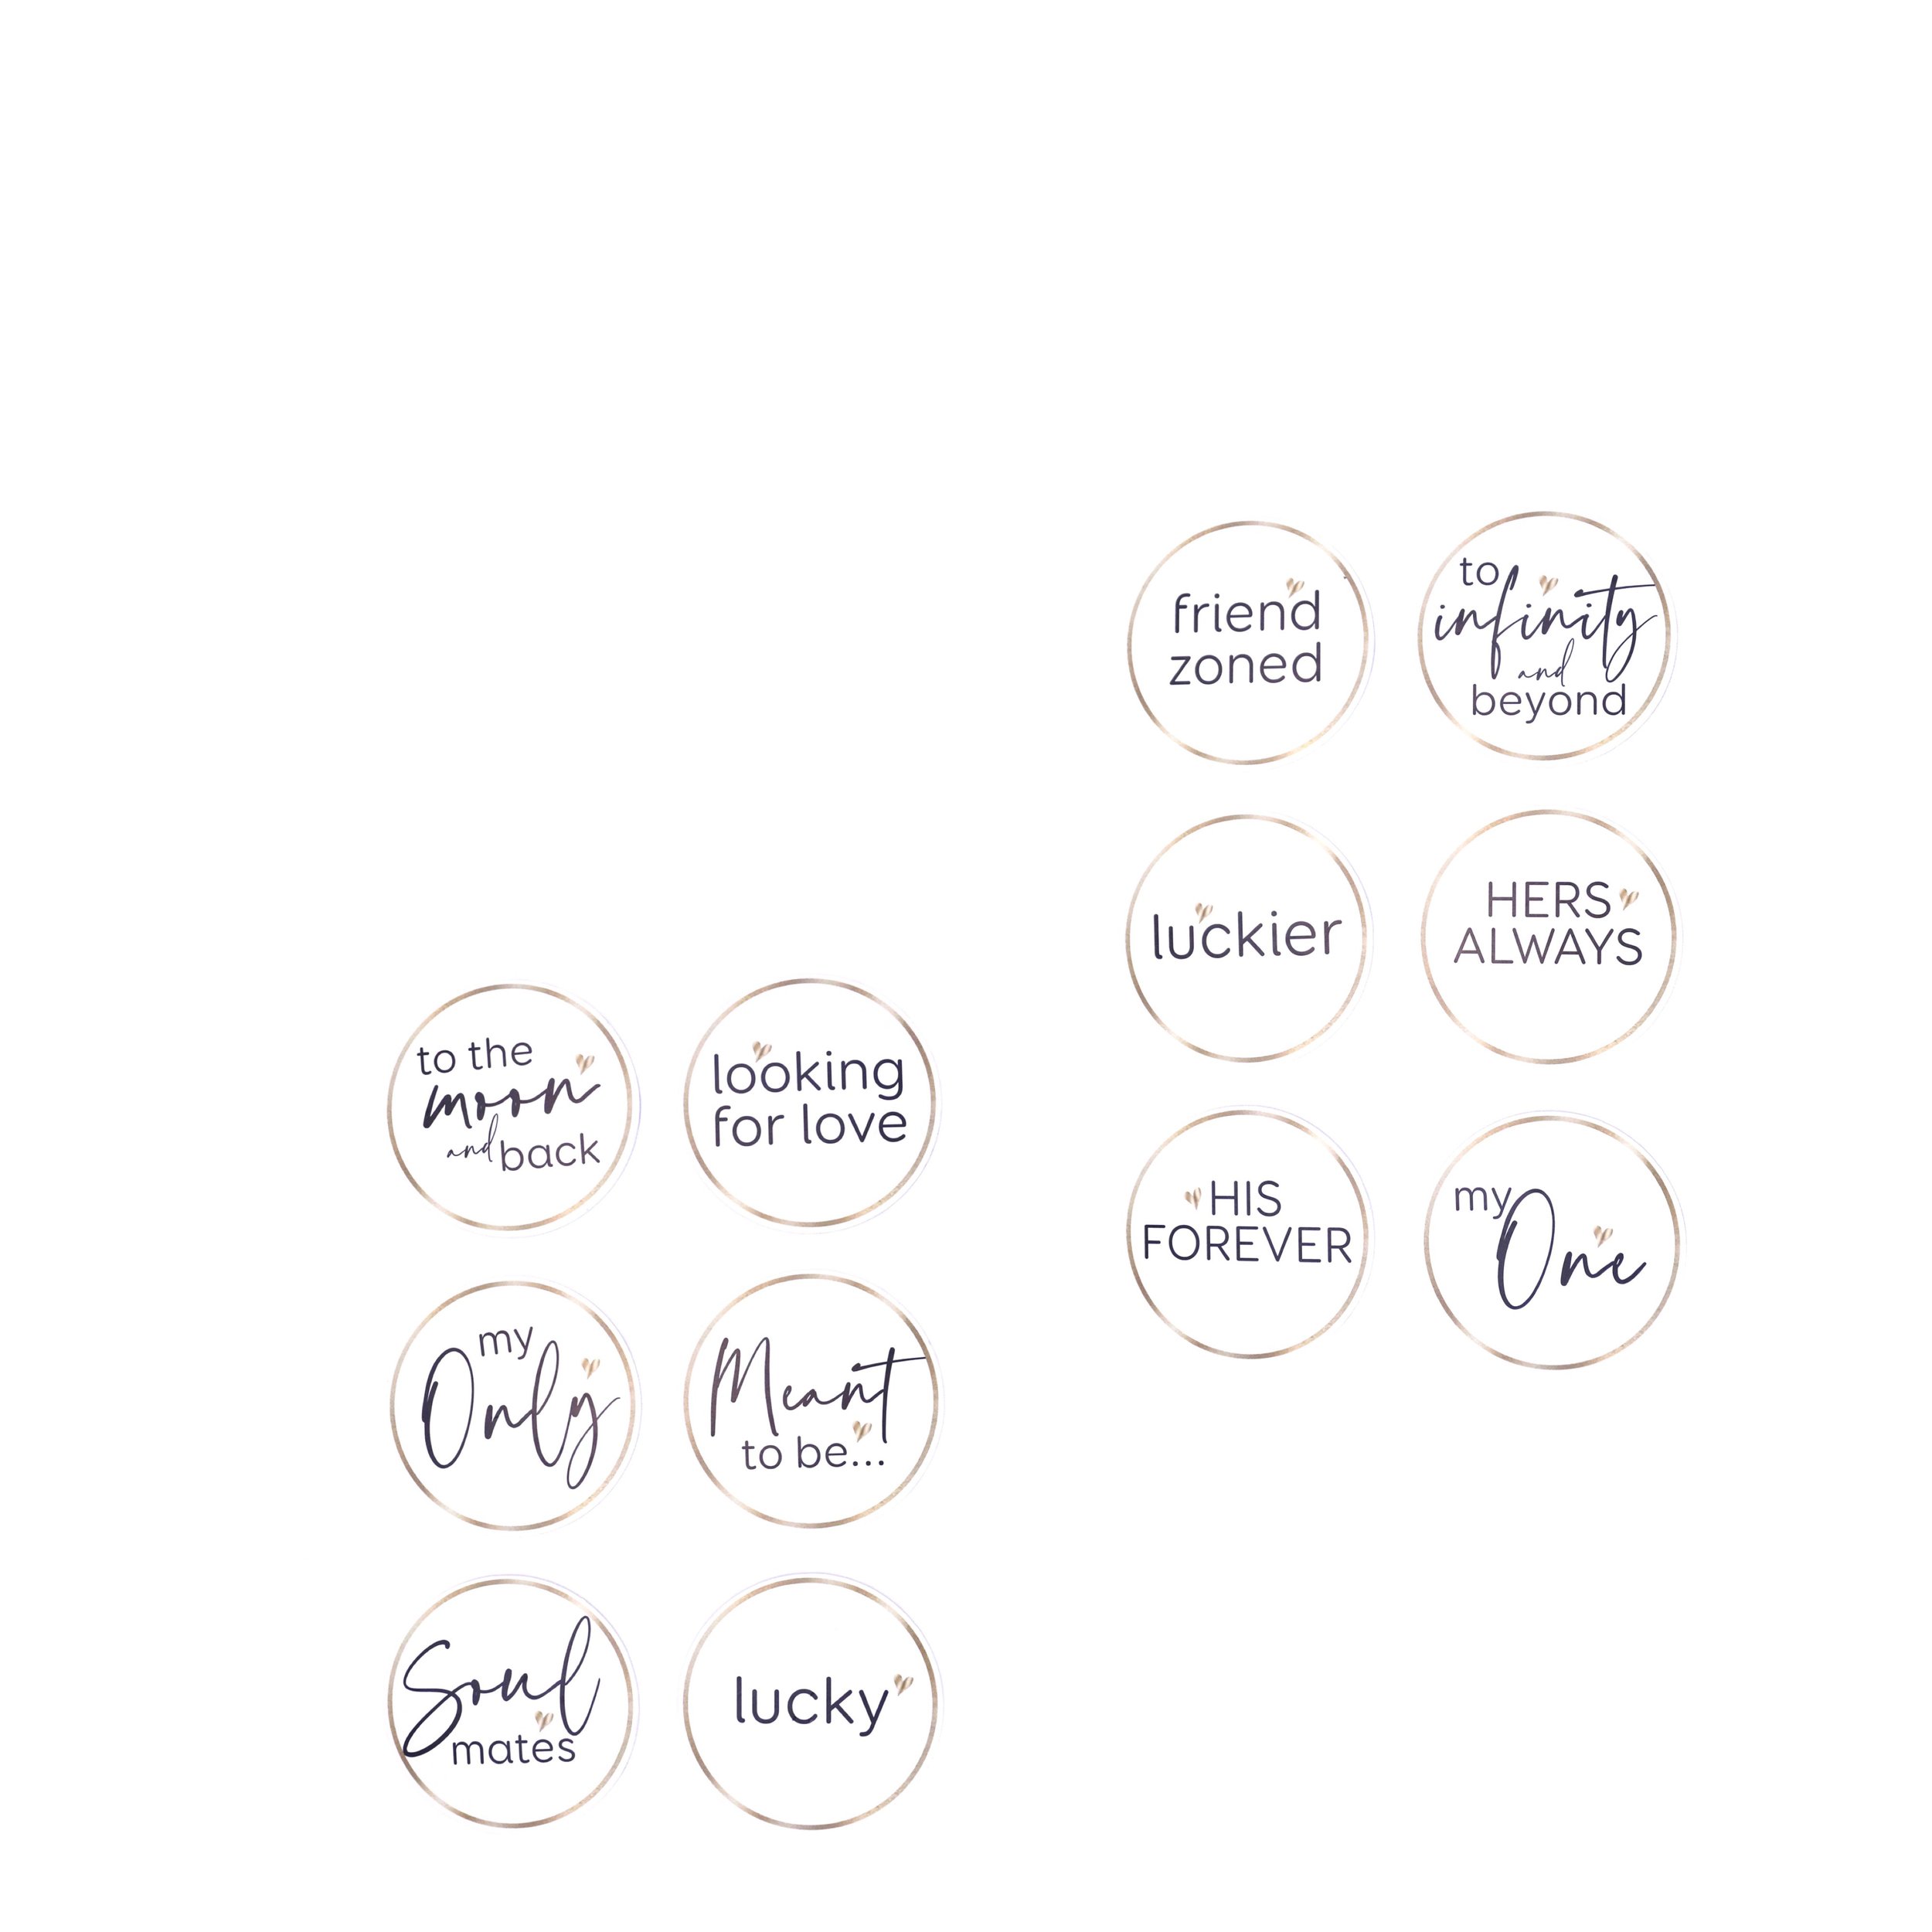 friend
zoned
to
infinity
and
beyond
luckier
HERS
ALWAYS
HIS
FOREVER
my
One
to the
moon
and back
looking
for love
my
Only
Meant
to be...
Soul
mates
lucky